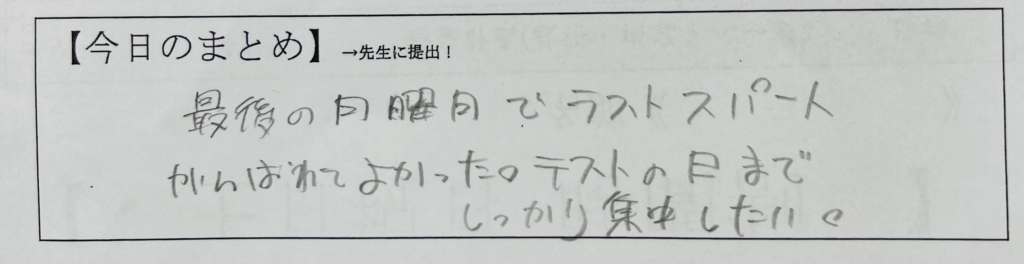 【今日のまとめ】→先生に提出！
最後の日曜日でラストスパート
がんばれてよかった。テストの日まで
しっかり集中したい。